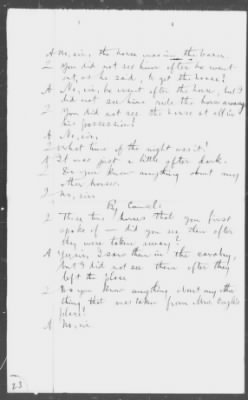 A No, sir, the horse was in the barn.
Q You did not see him after he went
out, as he said, to get the horse?
A No, sir, he went after the horse, but I
did not see him ride the horse away
Q You did not see the horse at all in
his possession?
A No, sir.
Q What time of the night was it?
A It was just a little after dark.
Q Do you know anything about any
other horses.
A No, sir
By Counsel:
Q These two horses that you first
spoke of — did you see them after
they were taken away?
A Yes, sir, I saw them in the cavalry,
but I did not see them after they
left the place
Q Do you know anything about any other
thing that was taken from Mrs.
place?
A No, sir
23